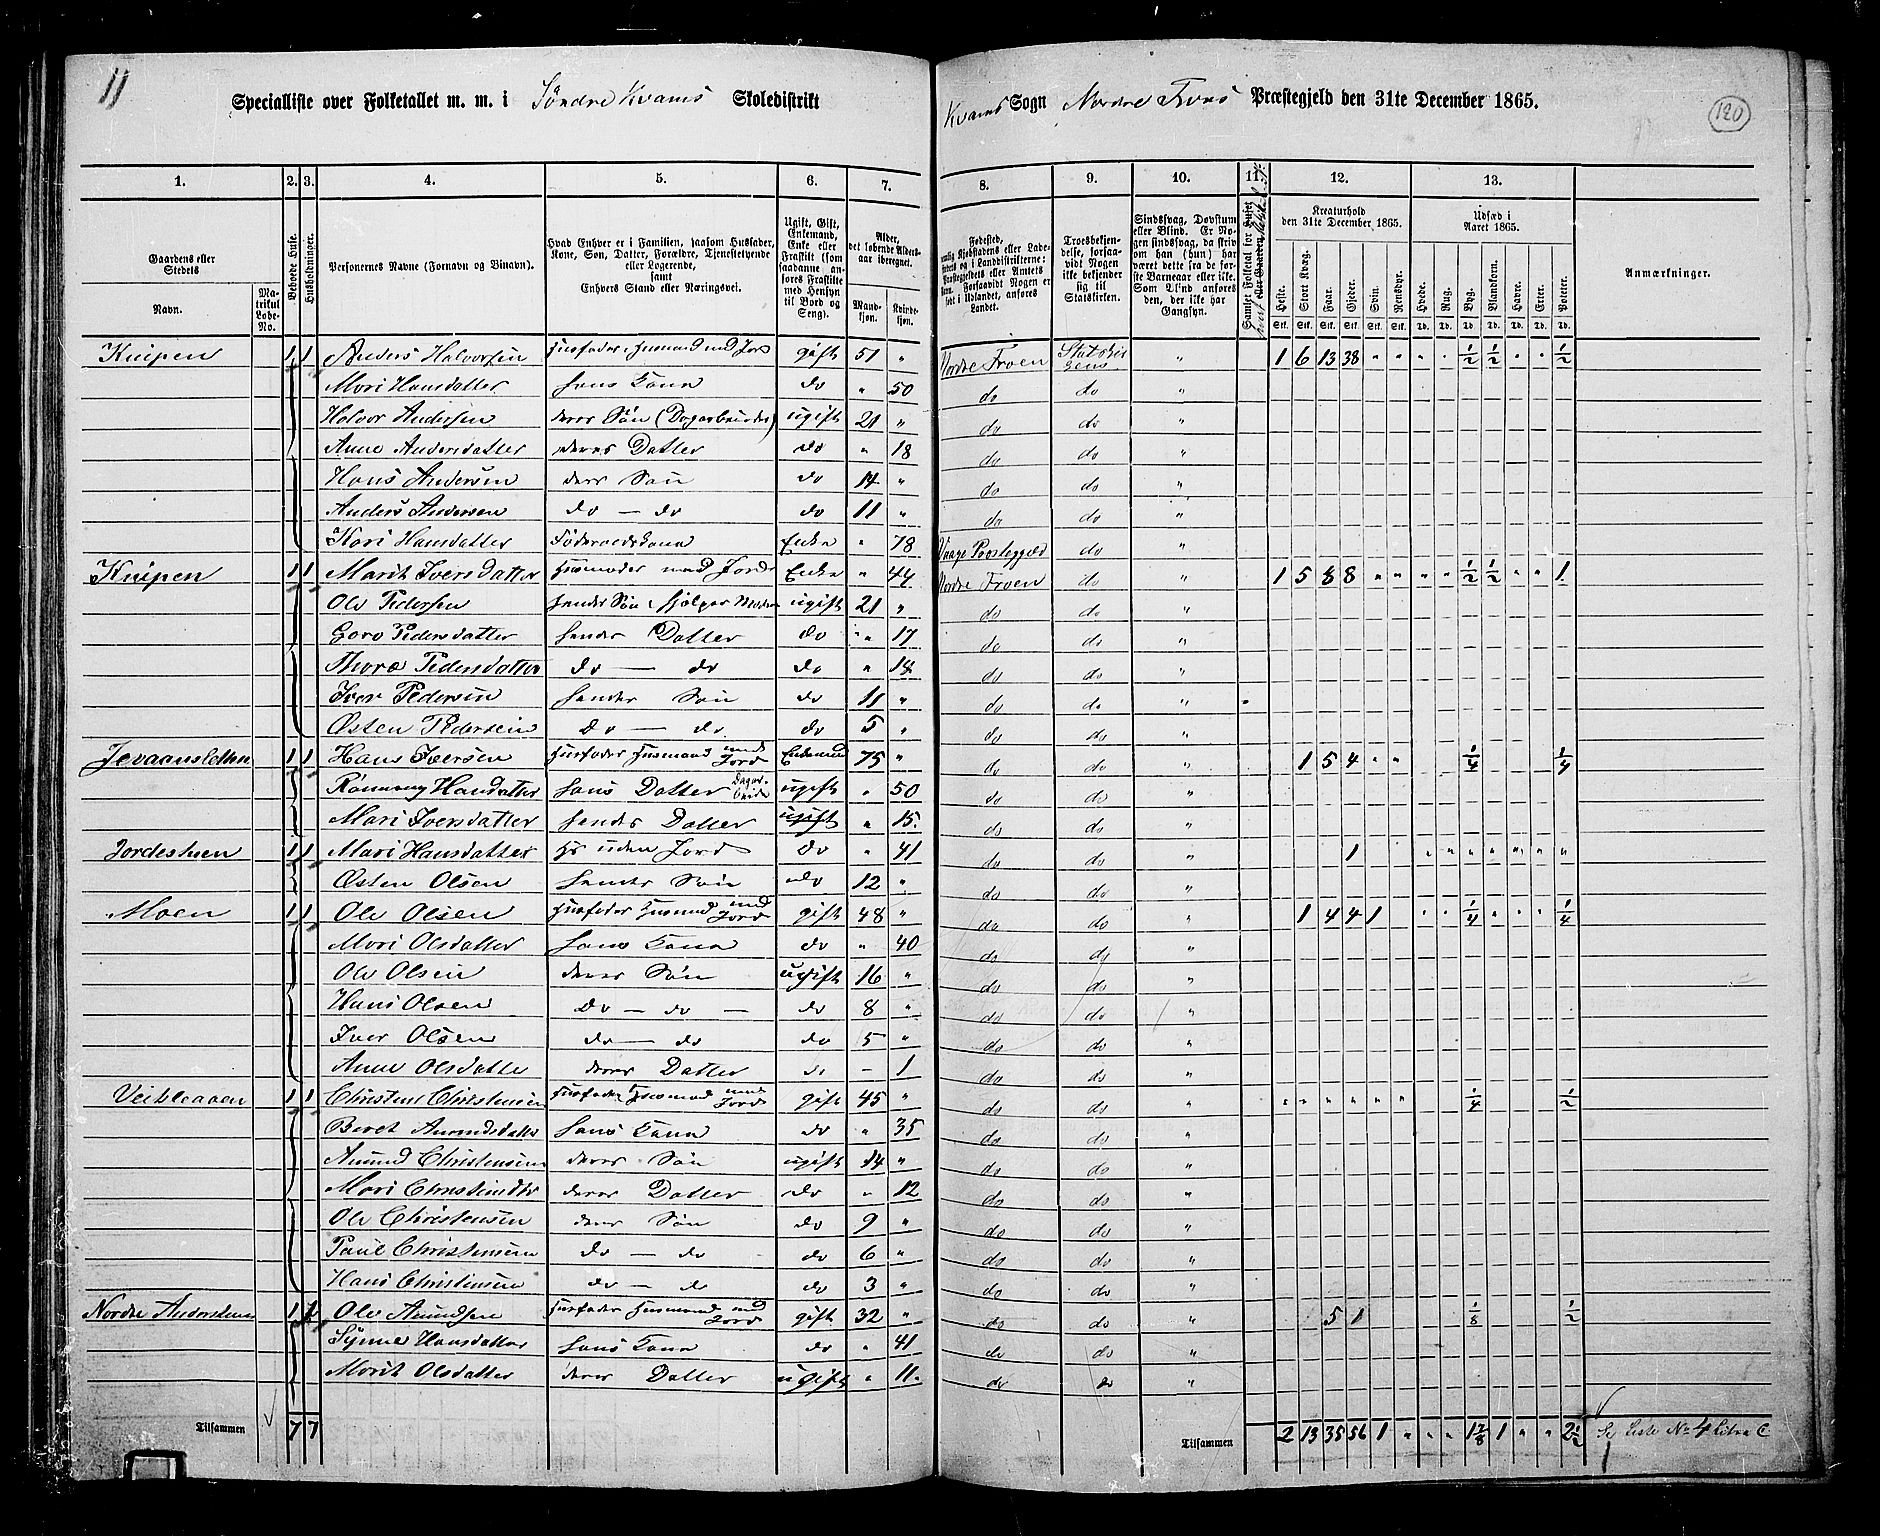 11
Specialliste over Folketallet m. m. i Søndre Kvams Skoledistrikt
Kvams Sogn Nordre Frons Præstegjeld den 31te December 1865.
120
1. 2. 3. 4. 5. 6. 7. 8. 9. 10. 11. 12. 13.
Gaardens eller Stedets
Navn. Matrikul Løbe-No.
Beboede Huse.
Husholdninger.
Personernes Navne (Fornavn og Binavn).
Hvad Enhver er i Familien, saasom Husfader, Kone, Søn, Datter, Forældre, Tjenestetyende eller Logerende, samt Enhvers Stand eller Næringsvei.
Ugift, Gift, Enkemand, Enke eller Fraskilt (som saadanne anføres Fraskilte med Hensyn til Bord og Seng).
Alder, det løbende Aldersaar iberegnet.
Mandkjøn. Kvindekjøn.
Fødested,
Troesbekjendelse, forsaavidt Nogen ikke bekjender sig til Statskirken.
Sindssvag, Døvstum eller Blind. Er Nogen sindssvag, da skrives om han (hun) har været dette fra de første Barneaar eller ikke. Som Blind anføres den, der ikke har Gangsyn.
Kreaturhold den 31te December 1865.
Heste. Stort Kvæg. Faar. Gjeder. Svin. Rensdyr.
Udsæd i Aaret 1865.
Hvede. Rug. Byg. Blandkorn. Havre. Erter. Poteter.
Anmærkninger.
Knipen 1 1 Anders Halvorsen Husfader, Husmand med Jord gift 51 " Nordre Froen Statskirkens " 1 6 13 38 " " " " 1/2 1/2 " " 1/2
Mari Hansdatter hans Kone do " 50 do do "
Halvor Andersen deres Søn (Dagarbeider) ugift 21 " do do "
Anne Andersdatter deres Datter do " 18 do do "
Hans Andersen deres Søn do 14 " do do "
Anders Andersen do — do do 11 " do do "
Kari Hansdatter Føderaadskone Enke " 78 Vaage Præstegjeld do "
Knipen 1 1 Marit Iversdatter Husmoder med Jord Enke " 44 Nordre Froen do " 1 5 8 " " " " 1/2 1/2 " " 1
Ole Pedersen hendes Søn, hjelper Moderen ugift 21 " do do "
Goro Pedersdatter hendes Datter do " 17 do do "
Thore Pedersdatter do — do do " 14 do do "
Iver Pedersen hendes Søn do 11 " do do "
Østen Pedersen do — do do 5 " do do
1 1 Hans Iversen Husfader Husmand med Jord Enkemand 75 " do do " 1 5 4 " " 1/4 1/4
Rønnaug Hansdatter hans Datter ugift " 50 do do "
Mari Iversdatter hendes Datter ugift " 15. do do "
1 1 Mari Hansdatter Hs uden Jord do " 41 do do " 1 " " " " " " "
Østen Olsen hendes Søn do 12 " do do "
Moen 1 1 Ole Olsen Husfader Husmand med Jord gift 48 " do do " 1 4 4 1 " " 1/4 " " " 1/4
Mari Olsdatter hans Kone do " 40 do do "
Ole Olsen deres Søn ugift 16 " do do "
Hans Olsen do — do — do 8 " do do "
Iver Olsen do — do do 5 " do do "
Anne Olsdatter deres Datter do – 1 do do "
1 1 Christen Christensen Husfader Husmand med Jord gift 45 " do do " " " " " " " 1/4 1/2
Beret Amundsdatter hans Kone do " 35 do do "
Amund Christensen deres Søn ugift 14 " do do "
Mari Christensdtr deres Datter do " 12 do do "
Ole Christensen deres Søn do 9 " do do "
Paul Christensen do — do do 6 " do do "
Hans Christensen do — do do 3 " do do "
Nordre 1 1 Ole Amundsen Husfader Husmand med Jord gift 32 " do do " 5 1 1/8 1/2
Synne Hansdatter hans Kone do " 41 do do "
Marit Olsdatter deres Datter ugift " 11. do do "
Tilsammen 7 7 Tilsammen 2 13 35 56 1 " " " 1 7/8 1 " " 2 1/2 Se Liste No 4 Litra C